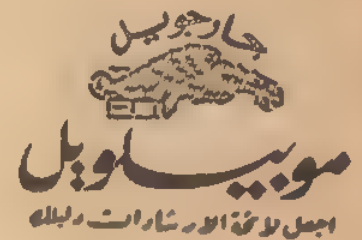 جارجويل
موبيلويل
اجعل لائحة الارشادات دليلك